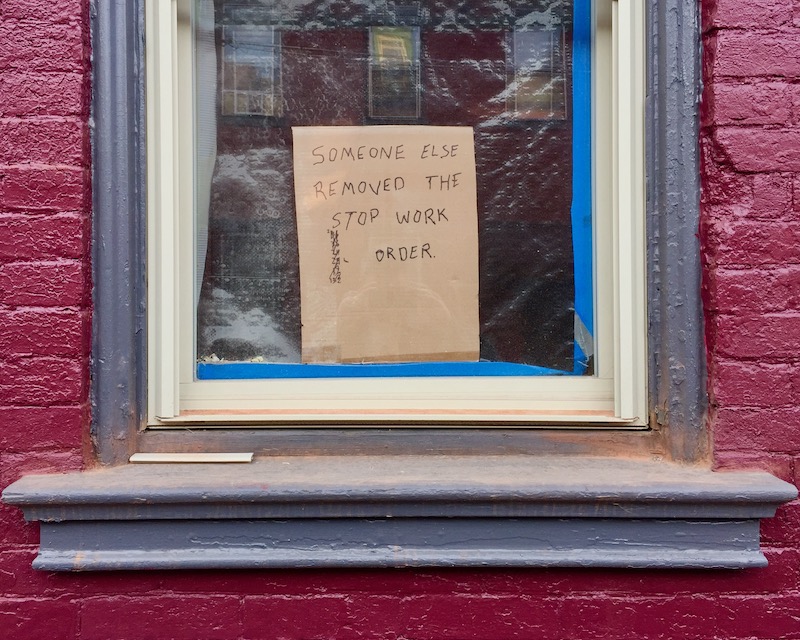 SOMEONE ELSE
REMOVED THE
STOP WORK
ORDER.